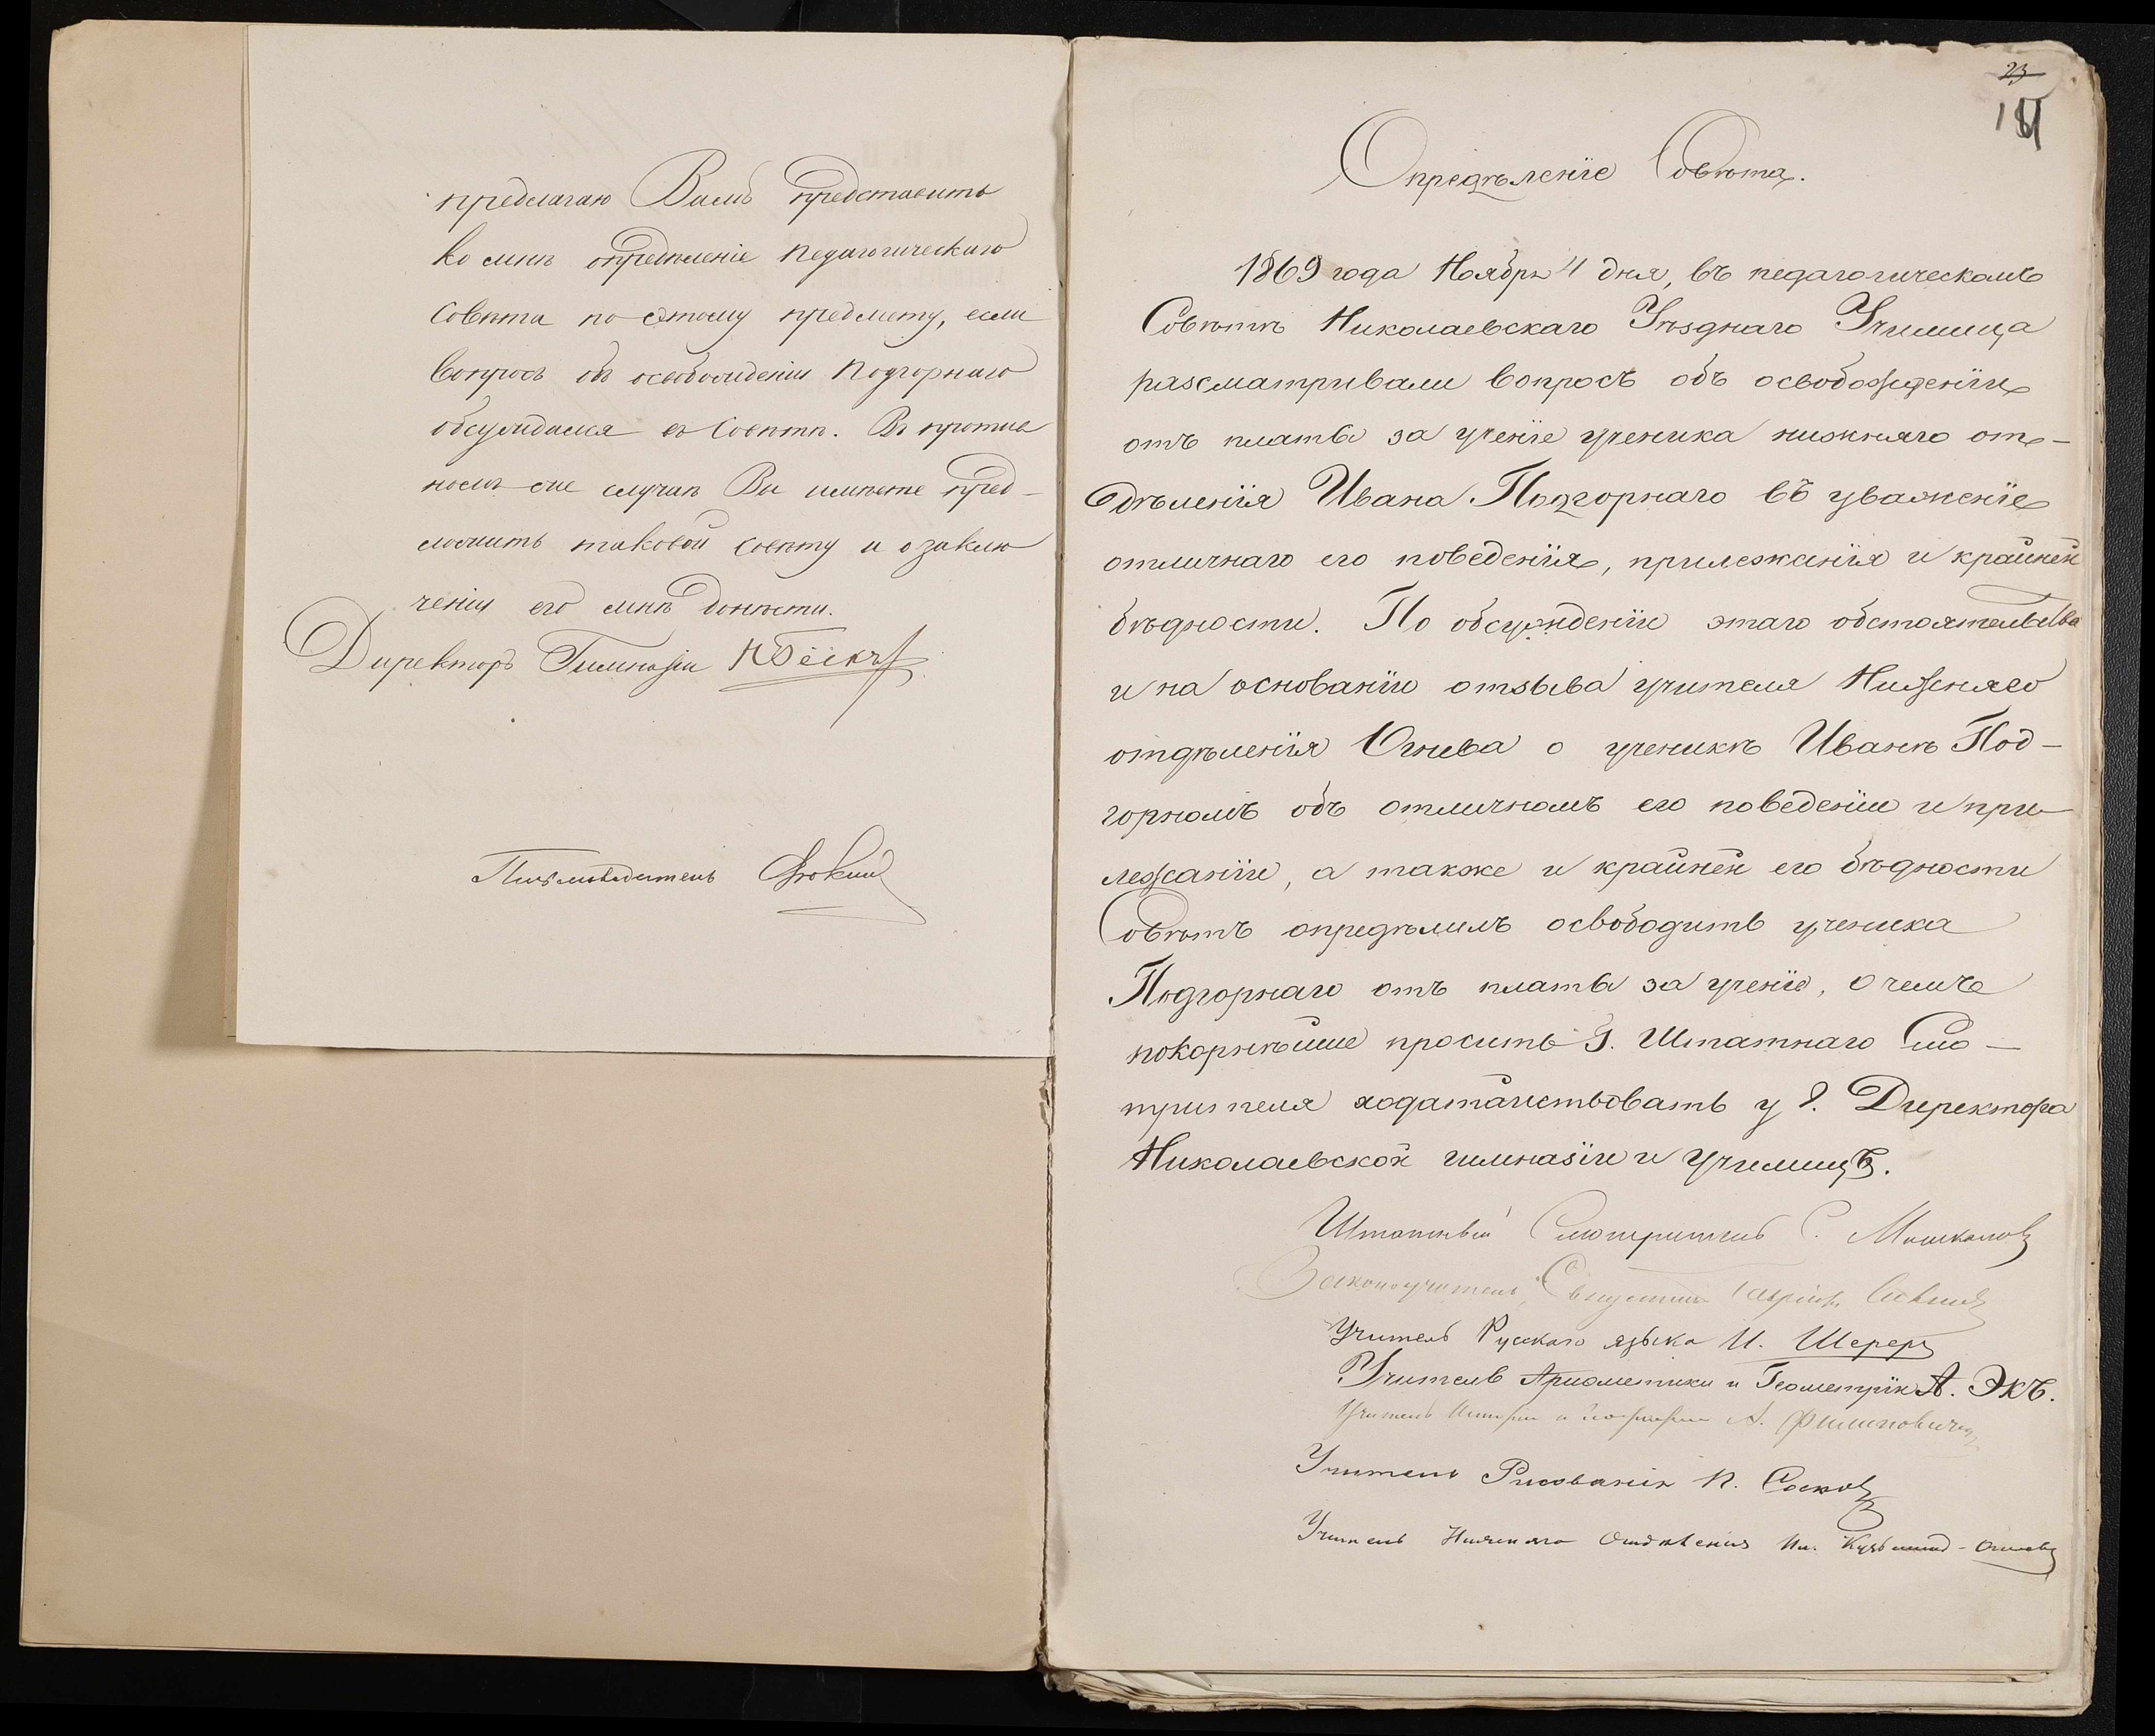 предлагаю Вамъ представить
ко мнѣ опредѣленіе Педагогическаго
Совѣта по этому предмету, если
вопросъ объ освобожденіи Подгорнаго
обсуждался въ Совѣтѣ. Въ против
номъ же случаѣ Вы имѣете пред-
ложить таковой Совѣту и о заклю
ченіи его мнѣ донести.
Директоръ Гимназіи
Письмоводитель
23
Опредѣленіе Совѣта.
1869 года Ноября 4 дня, въ педагогическомъ
Совѣтѣ Николаевскаго Уѣзднаго Училища
разсматривали вопросъ объ освобожденіи
отъ платы за ученіе ученика нижняго от-
дѣленія Ивана Подгорнаго въ уваженіе
отличнаго его поведенія, прилежанія и крайней
бѣдности. По обсужденіи этаго обстоятельства
и на основаніи отзыва учителя Нижняго
отдѣленія Огнева о ученикѣ Иванѣ Под-
горномъ объ отличномъ его поведеніи и при
лежаніи, а также и крайней его бѣдности
Совѣтъ опредѣлилъ освободить ученика
Подгорнаго отъ платы за ученіе, о чемъ
покорнѣйше просить Г. Штатнаго Смо-
трителя ходатайствовать у Г. Директора
Николаевской гимназіи и училищъ.
Штатный Смотритель С.
Законоучитель, Священникъ Гавріилъ
Учитель Русскаго языка И. Шереръ
Учитель Ариѳметики и Геометріи А. Экъ.
Учитель Исторіи и Географіи А. Филиповичъ
Учитель Рисованія П.
Учитель Нижняго Отдѣленія Ив. Кузьминъ-Огневъ